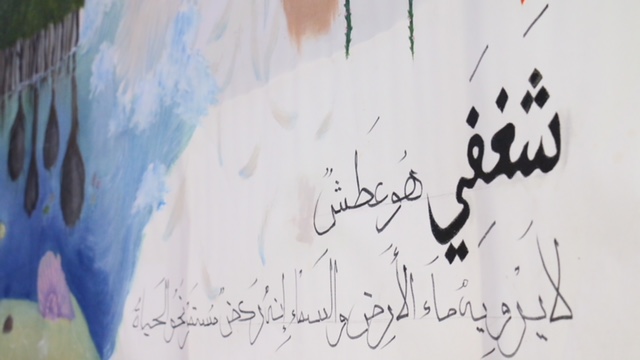 شَغَفَي
هُوَ عَطَشٌ
لا يَرْوِيهْ مَاءَ الأَرضِ والسَماء إنهُ رَكضٌ مُستَمرٌ نحوَ الحَياة